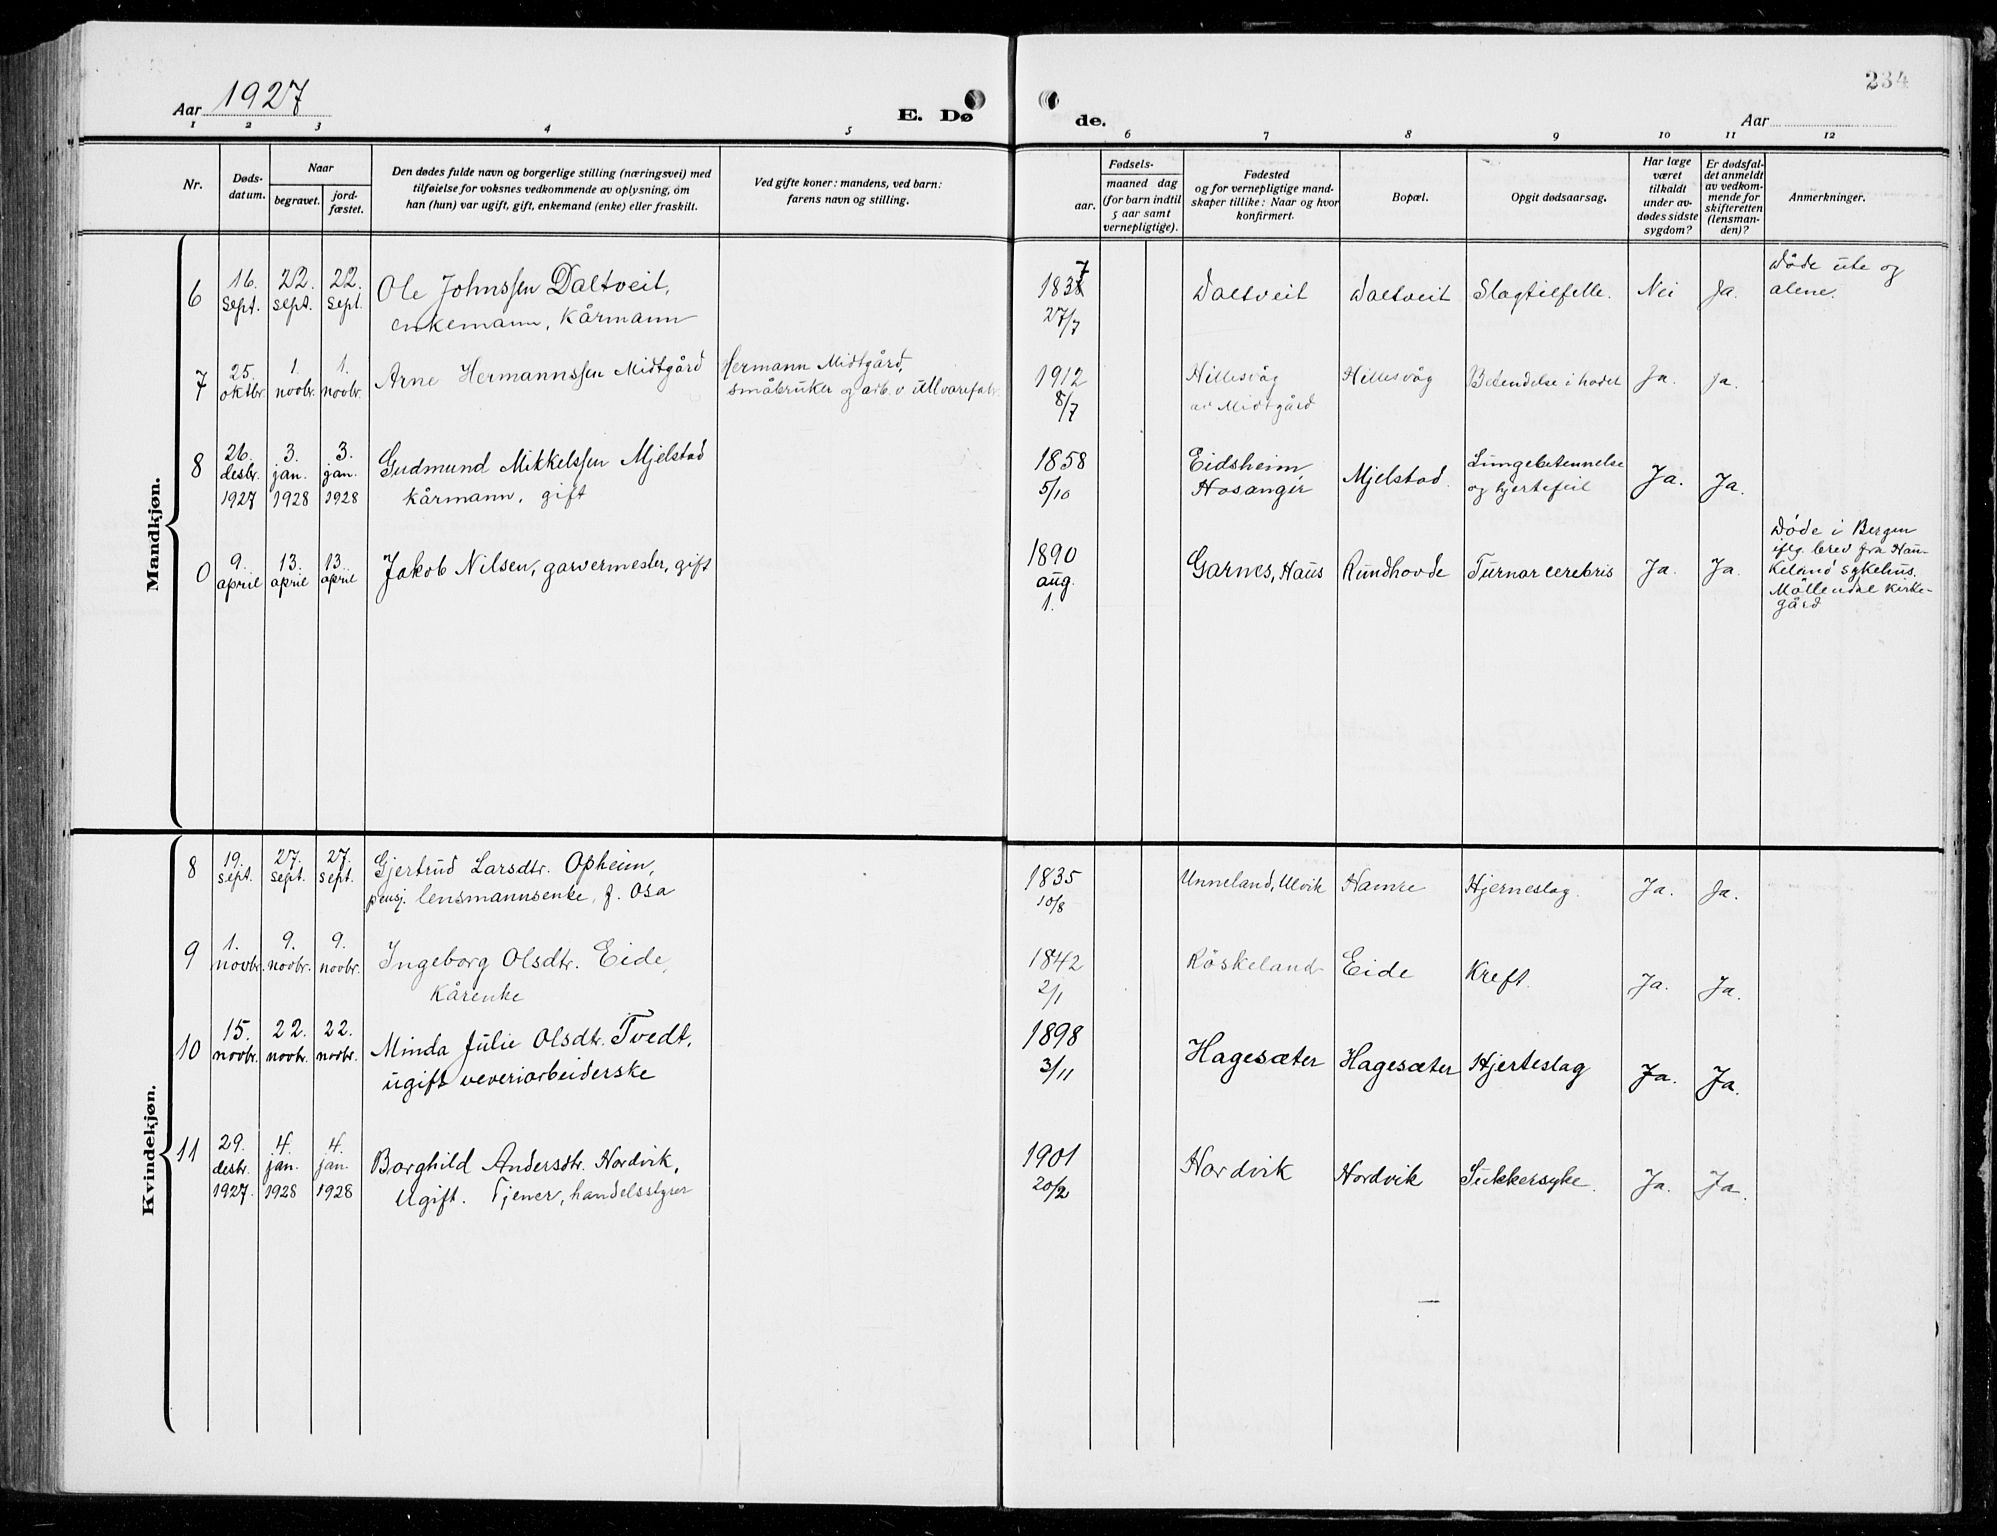 234
Aar 1927
E. Døde.
Aar
1 2 3 4 5 6 7 8 9 10 11 12
Nr.
Døds-
datum.
Naar
begravet.
jord-
fæstet.
Den dødes fulde navn og borgerlige stilling (næringsvei) med
tilføielse for voksnes vedkommende av oplysning, om
han (hun) var ugift, gift, enkemand (enke) eller fraskilt.
Ved gifte koner: mandens, ved barn:
farens navn og stilling.
Fødsels-
aar.
maaned dag
(for barn indtil
5 aar samt
vernepligtige).
Fødested
og for vernepligtige mand-
skaper tillike: Naar og hvor
konfirmert.
Bopæl.
Opgit dødsaarsag.
Har læge
været
tilkaldt
under av-
dødes sidste
sygdom?
Er dødsfal-
det anmeldt
av vedkom-
mende for
skifteretten
(lensman-
den)?
Anmerkninger.
Mandkjøn.
6
16.
sept.
22.
sept.
22.
sept.
Ole Johnssen Daltveit,
enkemann, kårmann
1837
27/7
Daltveit
Daltveit
Slagtilfelle.
Nei
Ja.
Døde ute og
alene.
7
25.
oktbr.
1.
novbr.
1.
novbr.
Arne Hermannssen Midtgård
Hermann Midtgård,
småbruker og arb. v. ullvarefabr.
1912
8/7
Hillesvåg
av Midtgård
Hillesvåg
Betendelse i hodet
Ja.
Ja.
8
26.
desbr.
1927
3.
jan.
1928
3.
jan.
1928
Gudmund Mikkelssen Mjelstad
kårmann, gift
1858
5/10
Eidsheim
Hosanger
Mjelstad.
Lungebetennelse
og hjertefeil
Ja.
Ja.
0
9.
april
13.
april
13.
april
Jakob Nilsen, garvermester, gift
1890
aug.
1.
Garnes, Haus
Rundhovde
Tumor cerebris
Ja.
Ja.
Døde i Bergen
iflg. brev fra Hau-
keland sykehus.
Möllendal kirke-
gård
Kvindekjøn.
8
19.
sept.
27.
sept.
27.
sept.
Gjertrud Larsdtr. Opheim,
pensj. lensmannsenke, f. Osa
1835
10/8
Unneland, Ulvik
Hamre
Hjerneslag.
Ja.
Ja.
9
1.
novbr.
9.
novbr.
9.
novbr.
Ingeborg Olsdtr. Eide,
kårenke
1842
2/1
Röskeland
Eide
Kreft.
Ja.
Ja.
10
15.
novbr.
22.
novbr.
22.
novbr.
Minda Julie Olsdtr. Tvedt,
ugift veveriarbeiderske
1898
3/11
Hagesæter
Hagesæter
Hjerteslag
Ja.
Ja.
11
29.
desbr.
1927.
4.
jan.
1928
4.
jan.
1928
Borghild Andersdtr. Nordvik,
Ugift. Tjener, handelsstyrer
1901
20/2
Nordvik
Nordvik
Sukkersyke.
Ja.
Ja.